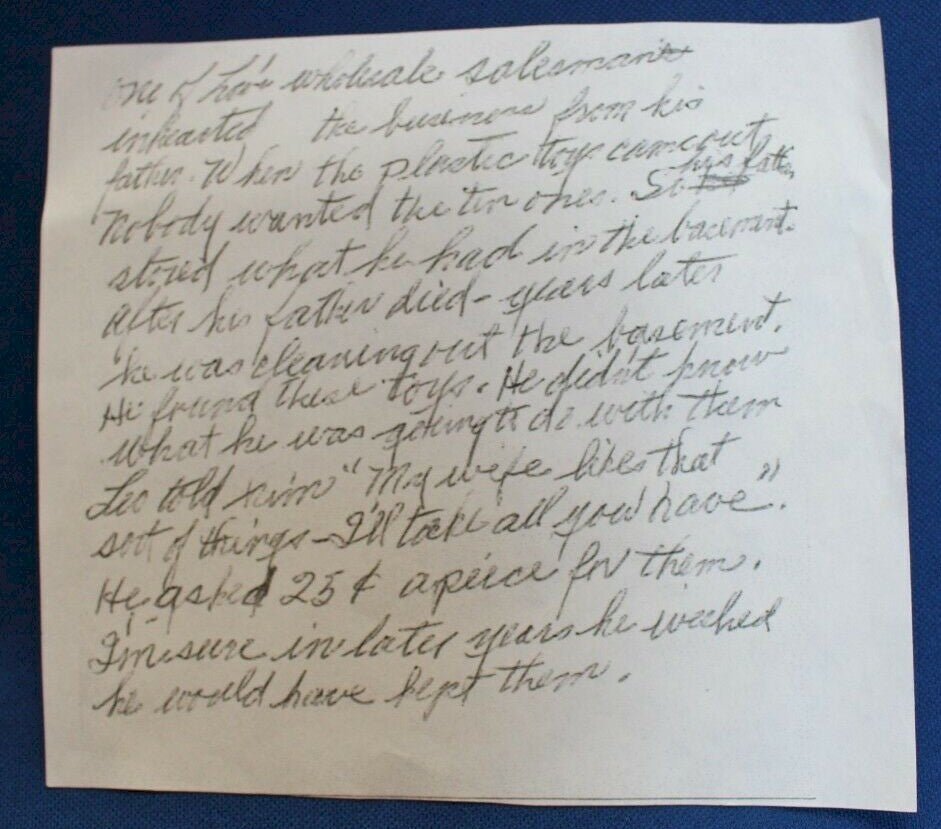 One of Leo's wholesale salesman
inhearted the business from his
father. When the plastic toys came out
nobody wanted the tin ones. So his father
stored what he had in the basement.
After his father died - years later
he was cleaning out the basement.
He found these toys. He didn't know
what he was going to do with them
Leo told him "My wife likes that
sort of things - I'll take all you have".
He asked 25¢ apeice for them.
I'm sure in later years he weshed
he would have kept them.